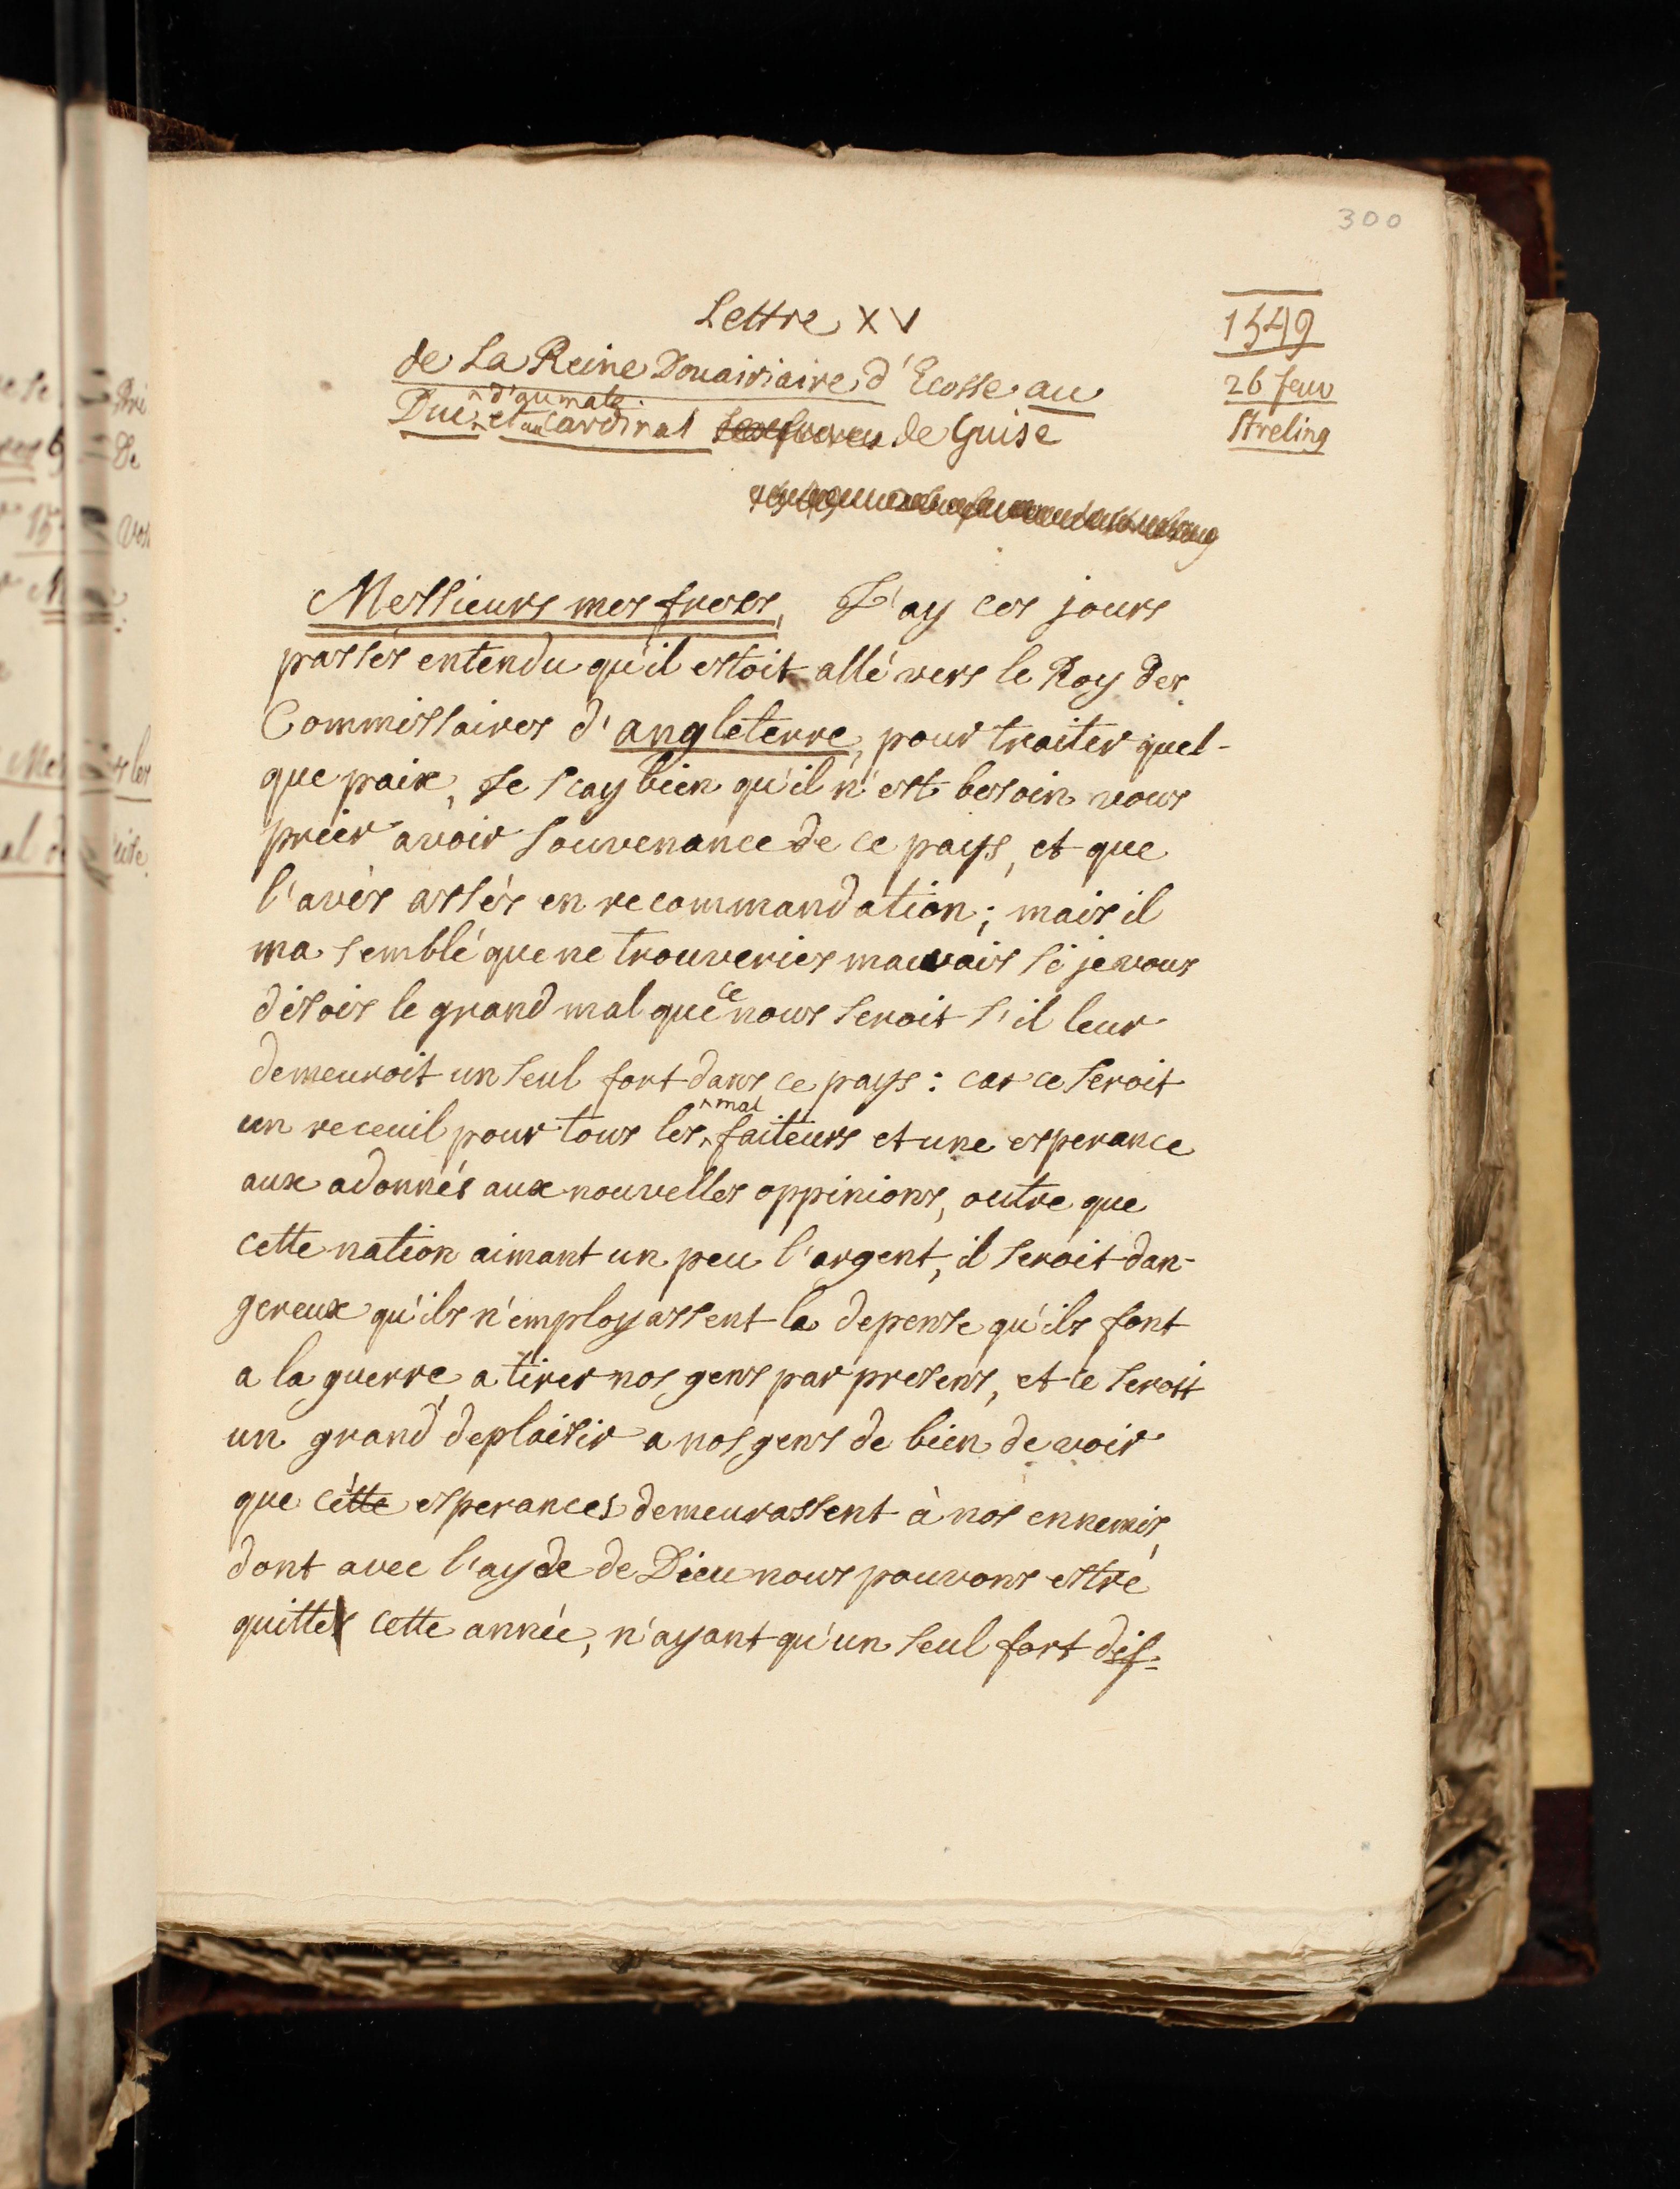 300
Lettre XV
1549
de La Reine Douairiaire d'Ecosse au
26 feuv
d'aumale
Duc et au Cardinal ses freres de Guise
Streling
Messieurs mes freres, J'ay ces jours
passés entendu qu'il estoit allé vers le Roy des
Commissaires d'angleterre, pour traiter quel-
que paix, Je scay bien qu'il n'est besoin vous
prier avoir souvenance de ce pays, et que
l'avés assés en recommandation; mais il
ma semblé que ne trouveries mauvais si je vous
disois le grand mal que ce nous seroit s'il leur
demeuroit un seul fort dans ce pays: car ce seroit
un receuil pour tous les mal faiteurs et une esperance
aux adonnés aux nouvelles oppinions, outre que
cette nation aimant un peu l'argent, il seroit dan-
gereux qu'ils n'employassent la depense qu'ils font
a la guerre, a tirer nos gens par presens, et ce seroit
un grand deplaisir a nos gens de bien de voir
que cette esperances demeurassent à nos ennemis,
dont avec l'ayde de Dieu nous pouvons estre
quittes cette année, n'ayant qu'un seul fort dif-